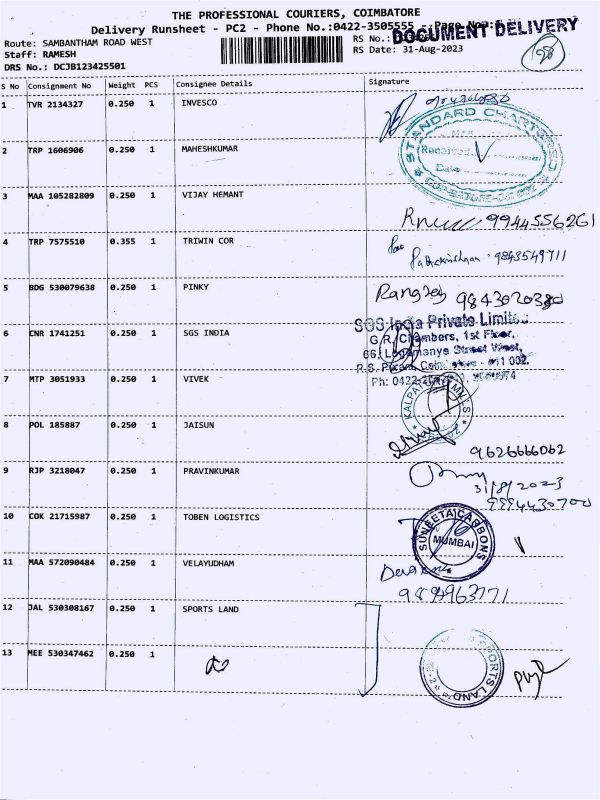 THE PROFESSIONAL COURIERS, COIMBATORE
Delivery Runsheet - PC2 - Phone No.:0422-3505555 Page No:
DOCUMENT DELIVERY
Route: SAMBANTHAM ROAD WEST RS No.:
Staff: RAMESH RS Date: 31-Aug-2023
DRS No.: DCJB123425501
S No Consignment No Weight PCS Consignee Details Signature
1 TVR 2134327 0.250 1 INVESCO
STANDARD CHARTERED
Received
Date
2 TRP 1606906 0.250 1 MAHESHKUMAR
3 MAA 105282809 0.250 1 VIJAY HEMANT 9944556261
4 TRP 7575510 0.355 1 TRIWIN COR 9843549711
5 BDG 530079638 0.250 1 PINKY 9843020380
6 CNR 1741251 0.250 1 SGS INDIA
SGS India Private Limited
G.R. Chambers, 1st Floor,
66, Logamanya Street West,
R.S. Puram, Coimbatore - 641 002.
Ph: 0422
7 MTP 3051933 0.250 1 VIVEK
MILLS
8 POL 185887 0.250 1 JAISUN 9626666062
9 RJP 3218047 0.250 1 PRAVINKUMAR
31/8/2023
9994430700
10 COK 21715987 0.250 1 TOBEN LOGISTICS
SUNEETA CARBONS
MUMBAI
11 MAA 572090484 0.250 1 VELAYUDHAM
9894963771
12 JAL 530308167 0.250 1 SPORTS LAND
13 MEE 530347462 0.250 1 do
SPORTS LAND